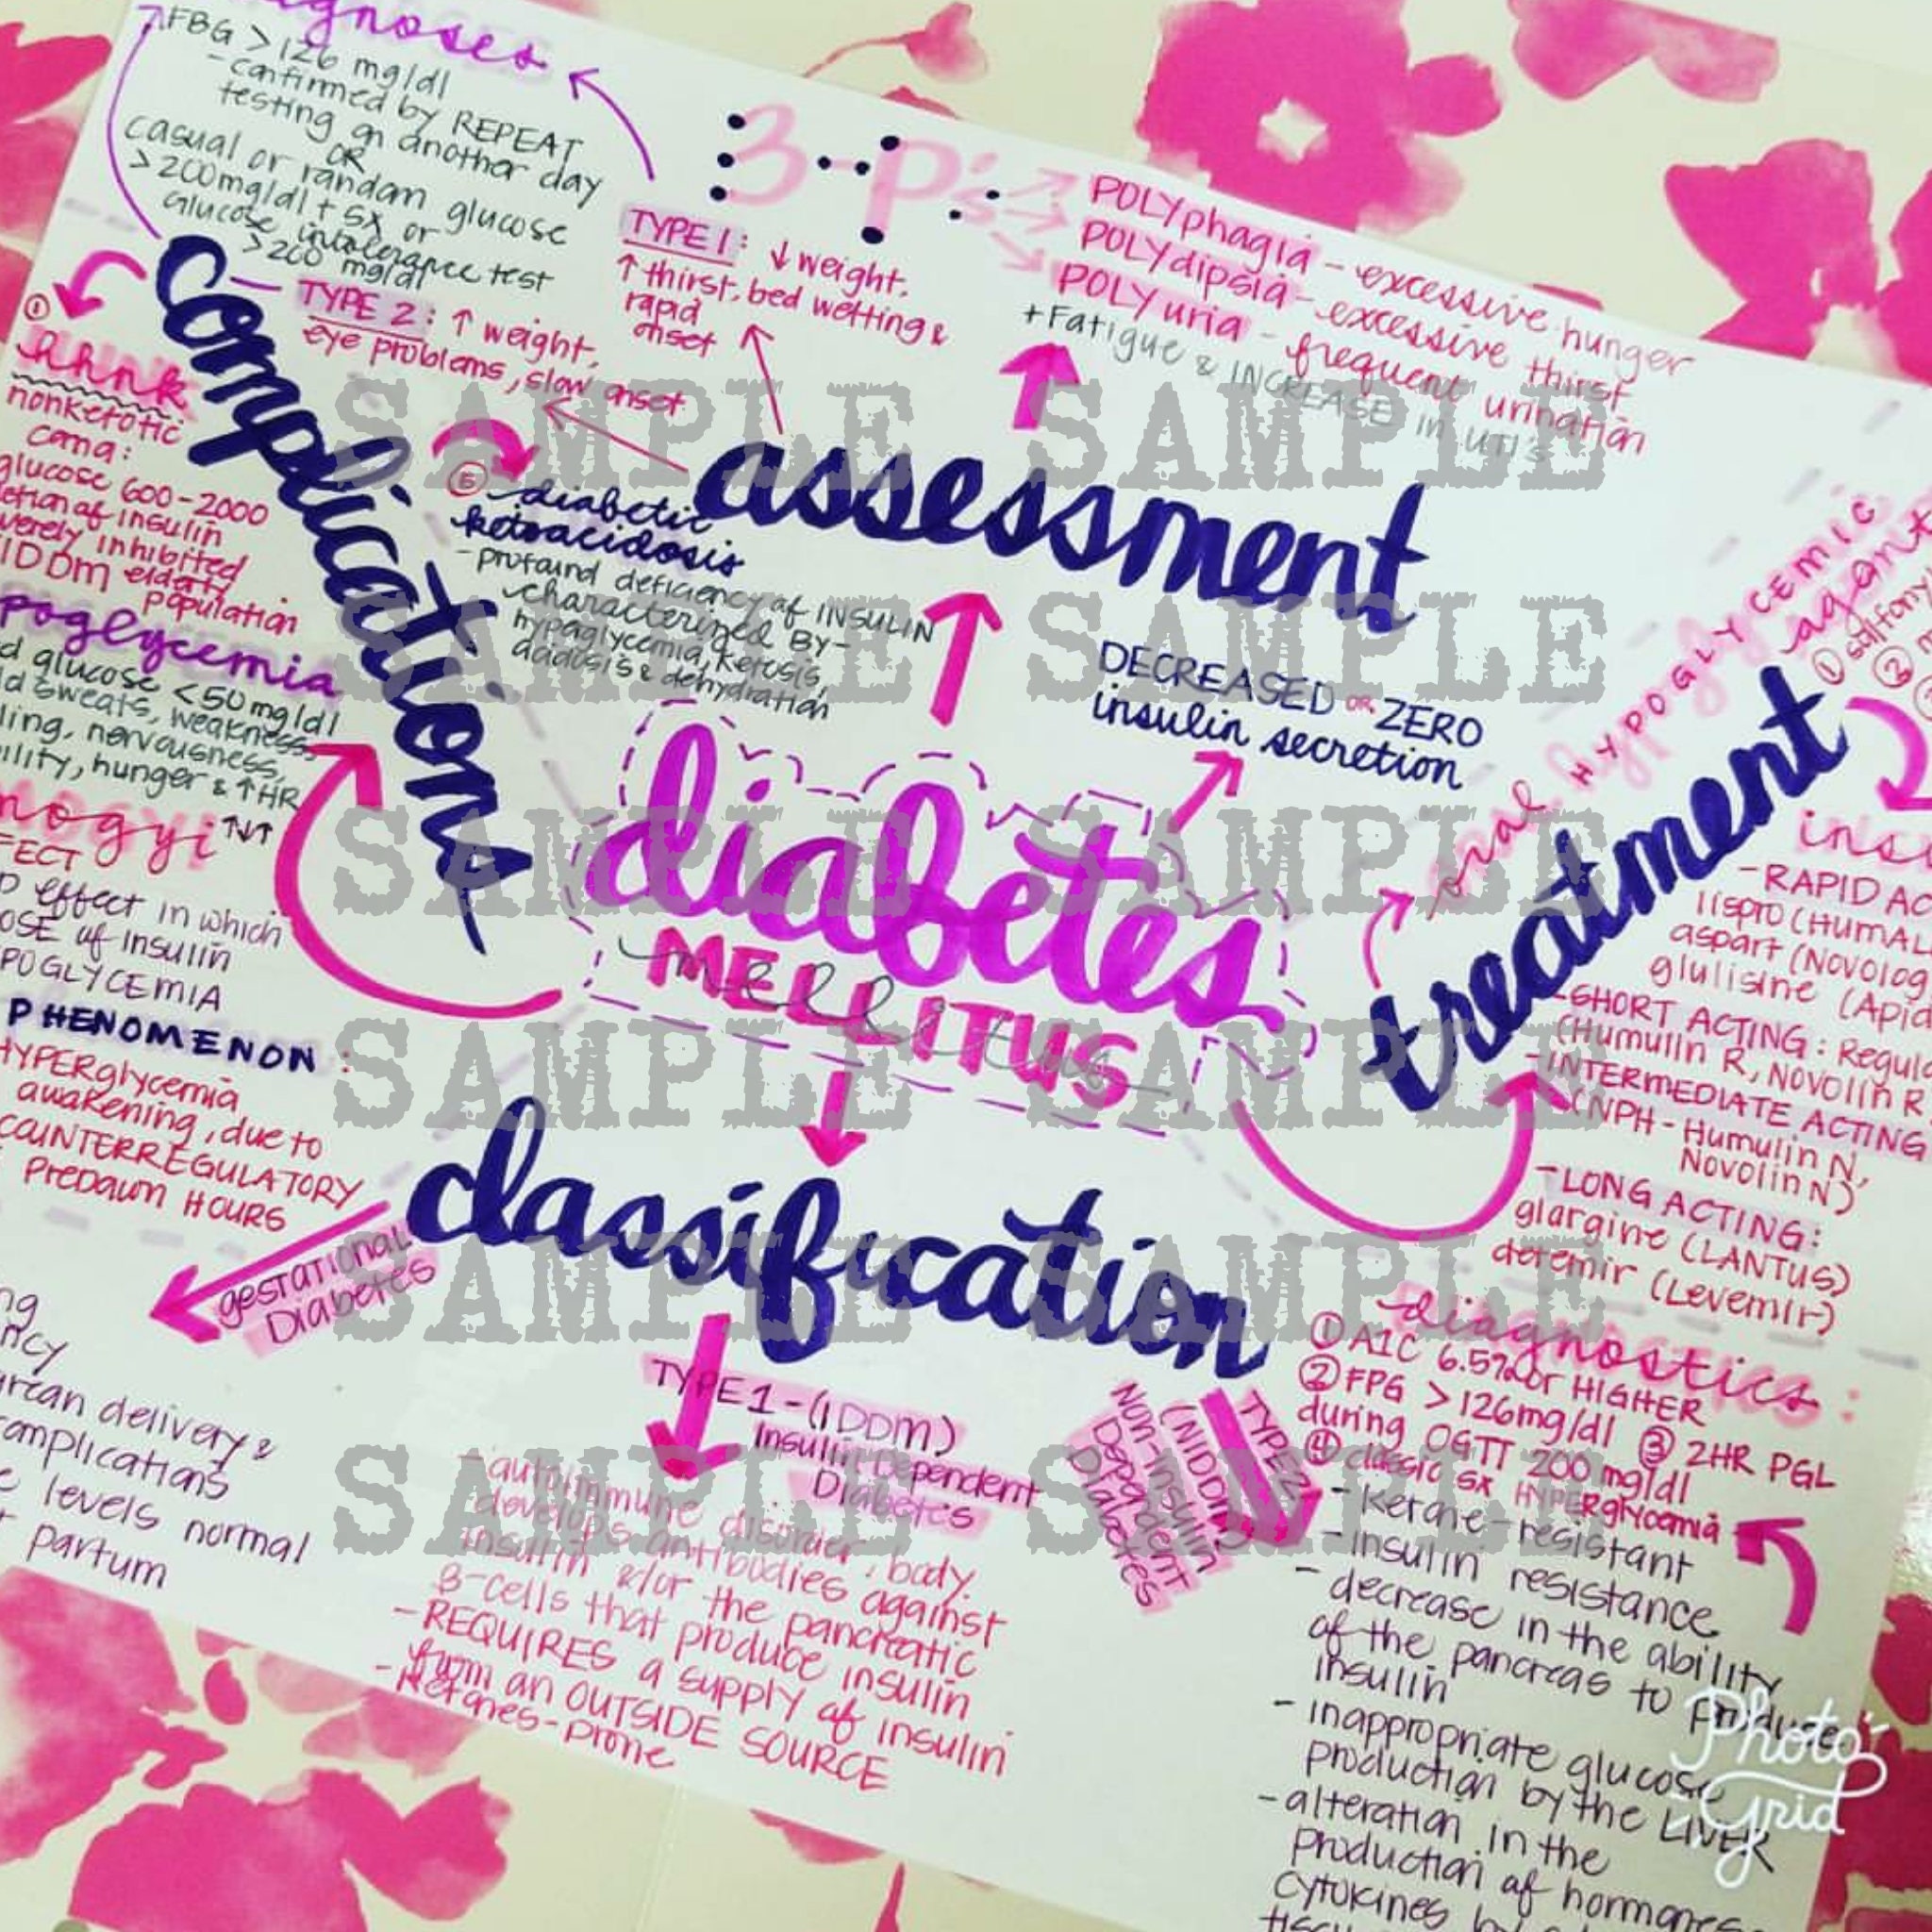 agnoses
FBG > 126 mg/dl
- confirmed by REPEAT
testing on another day
OR
casual or random glucose
> 200mg/dl + SX or
Glucose intolerance test
> 200 mg/dl
3-P's
POLYphagia - excessive hunger
POLYdipsia - excessive thirst
POLYuria - frequent urination
+Fatigue & INCREASE in UTI's
TYPE 1: ↓ weight,
↑ thirst, bed wetting &
rapid
onset
TYPE 2: ↑ weight,
eye problems, slow onset
complications
assessment
①
hhnk
nonketotic
coma:
glucose 600-2000
etion of insulin
verely inhibited
IDDM elderly
population
poglycemia
d glucose <50mg/dl
ld sweats, weakness,
ling, nervousness,
ility, hunger & ↑HR
mogyi ↑↓↑
FECT
D effect in which
OSE of insulin
POGLYCEMIA
PHENOMENON:
HYPERglycemia
awakening, due to
COUNTERREGULATORY
Predawn HOURS
⑤ diabetic
ketoacidosis
- profound deficiency of INSULIN
characterized By-
hypaglycemia, ketosis,
acidosis & dehydration
DECREASED OR ZERO
insulin secretion
diabetes
MELLITUS
mellitus
treatment
oral HYPOGLYCEMIC
agent
①
②
ins
- RAPID AC
lispro (HUMAL
aspart (NOVOlog
glulisine (Apid
- SHORT ACTING: Regula
(Humulin R, NOVOlin R
- INTERMEDIATE ACTING
(NPH - Humulin N,
Novolin N)
- LONG ACTING:
glargine (LANTUS)
detemir (Levemir)
classification
gestational
Diabetes
ng
ncy
rean delivery &
omplications
e levels normal
partum
TYPE 1 - (IDDM)
Insulin Dependent
Diabetes
- autoimmune disorder, body
develops antibodies against
insulin &/or the pancreatic
B-cells that produce insulin
- REQUIRES a supply of insulin
from an OUTSIDE SOURCE
- Ketones-prone
TYPE 2
(NIDDM)
Non-Insulin
Dependent
Diabetes
diagnostics:
① A1C 6.5% or HIGHER
② FPG > 126mg/dl ③ 2HR PGL
during OGTT 200 mg/dl
④ classic SX HYPERglycemia
- Ketone-resistant
- insulin resistance
- decrease in the ability
of the pancreas to produce
insulin
- inappropriate glucose
production by the LIVER
- alteration in the
production of hormones
cytokines by
SAMPLE SAMPLE
SAMPLE SAMPLE
SAMPLE SAMPLE
SAMPLE SAMPLE
SAMPLE SAMPLE
SAMPLE SAMPLE
Photo
Grid